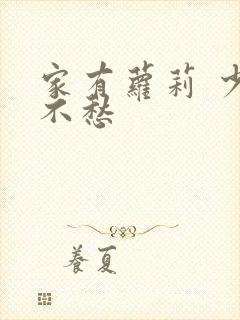 家有蘿莉 少
不愁
養夏